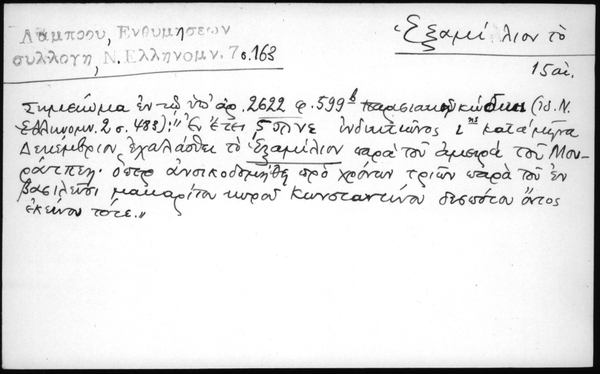 Λάμπρου, Ἐνθυμήσεων
συλλογή, Ν. Ἑλληνομν. 7 σ. 163
Ἑξαμίλιον τὸ
15 αἰ.
Σημείωμα ἐν τῷ ὑπ' ἀρ. 2622 φ. 599β παρισιακῷ κώδικι (ἰδ. Ν.
Ἑλληνομν. 2 σ. 483): "Ἐν ἔτει ϛ ϡ ν ε ἰνδικτιῶνος ι ης κατὰ μῆνα
Δεκέμβριον ἐχαλάσθει τὸ Ἑξαμίλιον παρὰ τοῦ ἀμειρᾶ τοῦ Μου-
ράτπεη· ὅπερ ἀνοικοδομήθη πρὸ χρόνων τριῶν παρὰ τοῦ ἐν
βασιλεῦσι μακαρίτου κυροῦ Κωνσταντίνου δεσπότου ὄντος
ἐκείνου τότε."